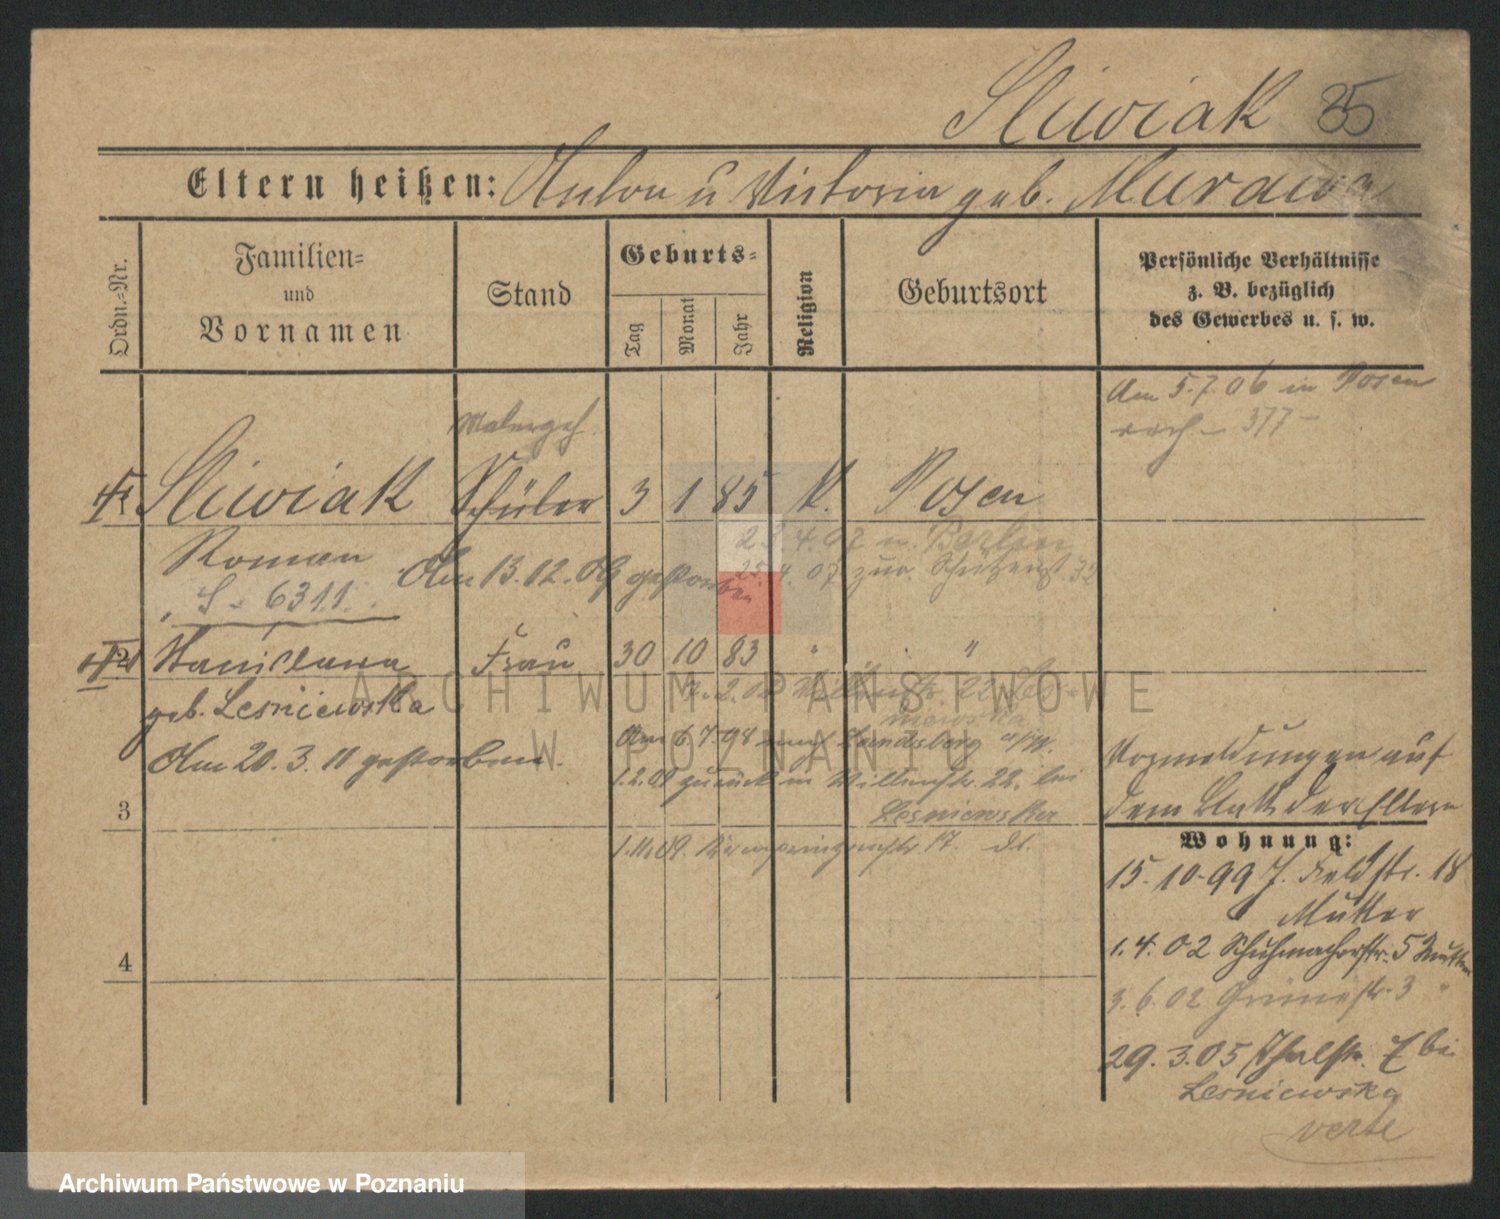 Sliwiak 85
Eltern heißen: Anton u Victoria geb. Murawa
Ordn.=Nr.
Familien=
und
Vornamen
Stand
Geburts=
Tag
Monat
Jahr
Religion
Geburtsort
Persönliche Verhältnisse
z. B. bezüglich
des Gewerbes u. s. w.
Am 5.7.06 in Posen
377
Malergeh.
1 Sliwiak Schüler 3 1 85 K. Posen
Roman
23.4.07 n. Berlin
Am 13.12.09 gestorben
25.4.07 zur. Schützenst. 32
S - 6311.
2 Stanislawa Frau 30 10 83 " "
geb. Lesniewska
Am 20.3.11 gestorben.
Am 6.7.08 nach Landsberg a/W.
1.2.09 zurück in 22. bei
Lesniewska
1.11.09. 17. dt.
3
4
Vormeldungen auf
dem Blatt der Eltern
Wohnung:
15.10.99 J. Feldstr. 18
Mutter
1.4.02 Schuhmacherstr. 5 Mutter
3.6.02 Grünestr. 3 "
29.3.05 Thalstr. 7 bei
Lesniewska
verte
ARCHIWUM PAŃSTWOWE
W POZNANIU
Archiwum Państwowe w Poznaniu